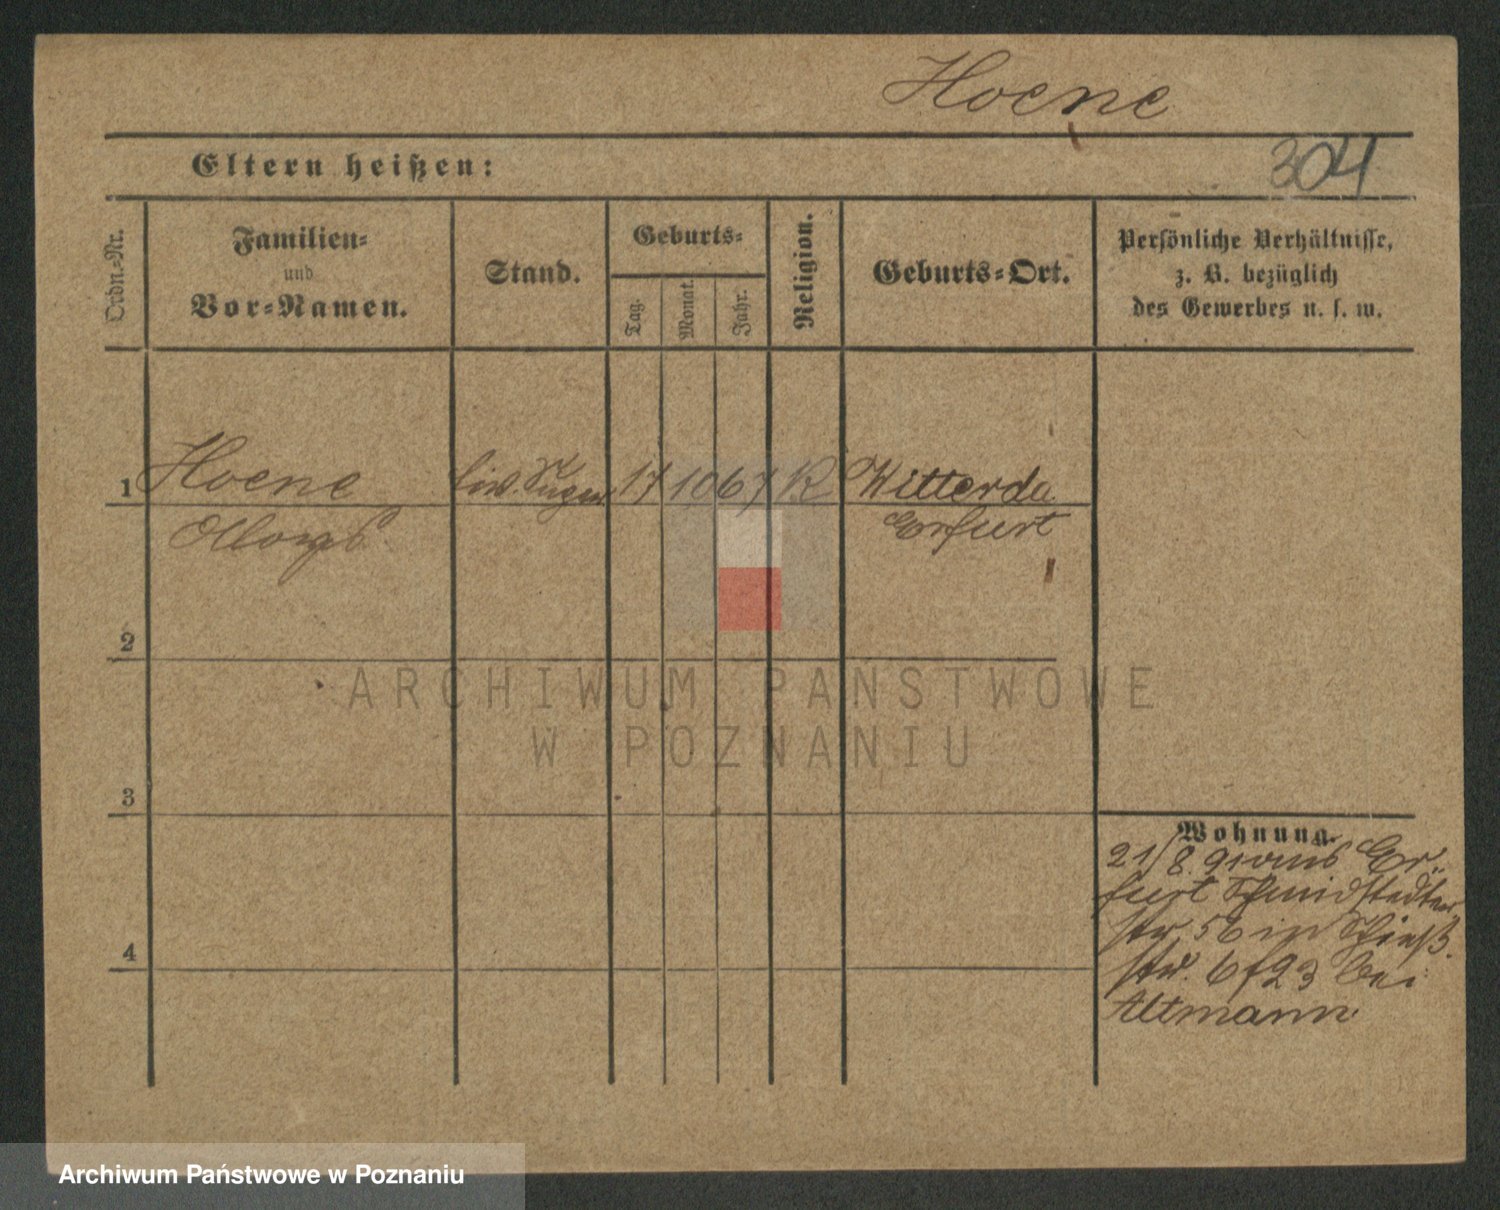 Hoene
304
Eltern heißen:
Ordn.-Nr.
Familien-
und
Vor-Namen.
Stand.
Geburts-
Tag.
Monat.
Jahr.
Religion.
Geburts-Ort.
Persönliche Verhältnisse,
z. B. bezüglich
des Gewerbes u. s. w.
1 Hoene 17 10 67 K Witterda
Erfurt
2
3
4
Wohnung.
21/8. 91 aus Er-
furt Schmidtstedter
str. 56 in
str. 6 f 23 bei
Altmann
ARCHIWUM PAŃSTWOWE
W POZNANIU
Archiwum Państwowe w Poznaniu